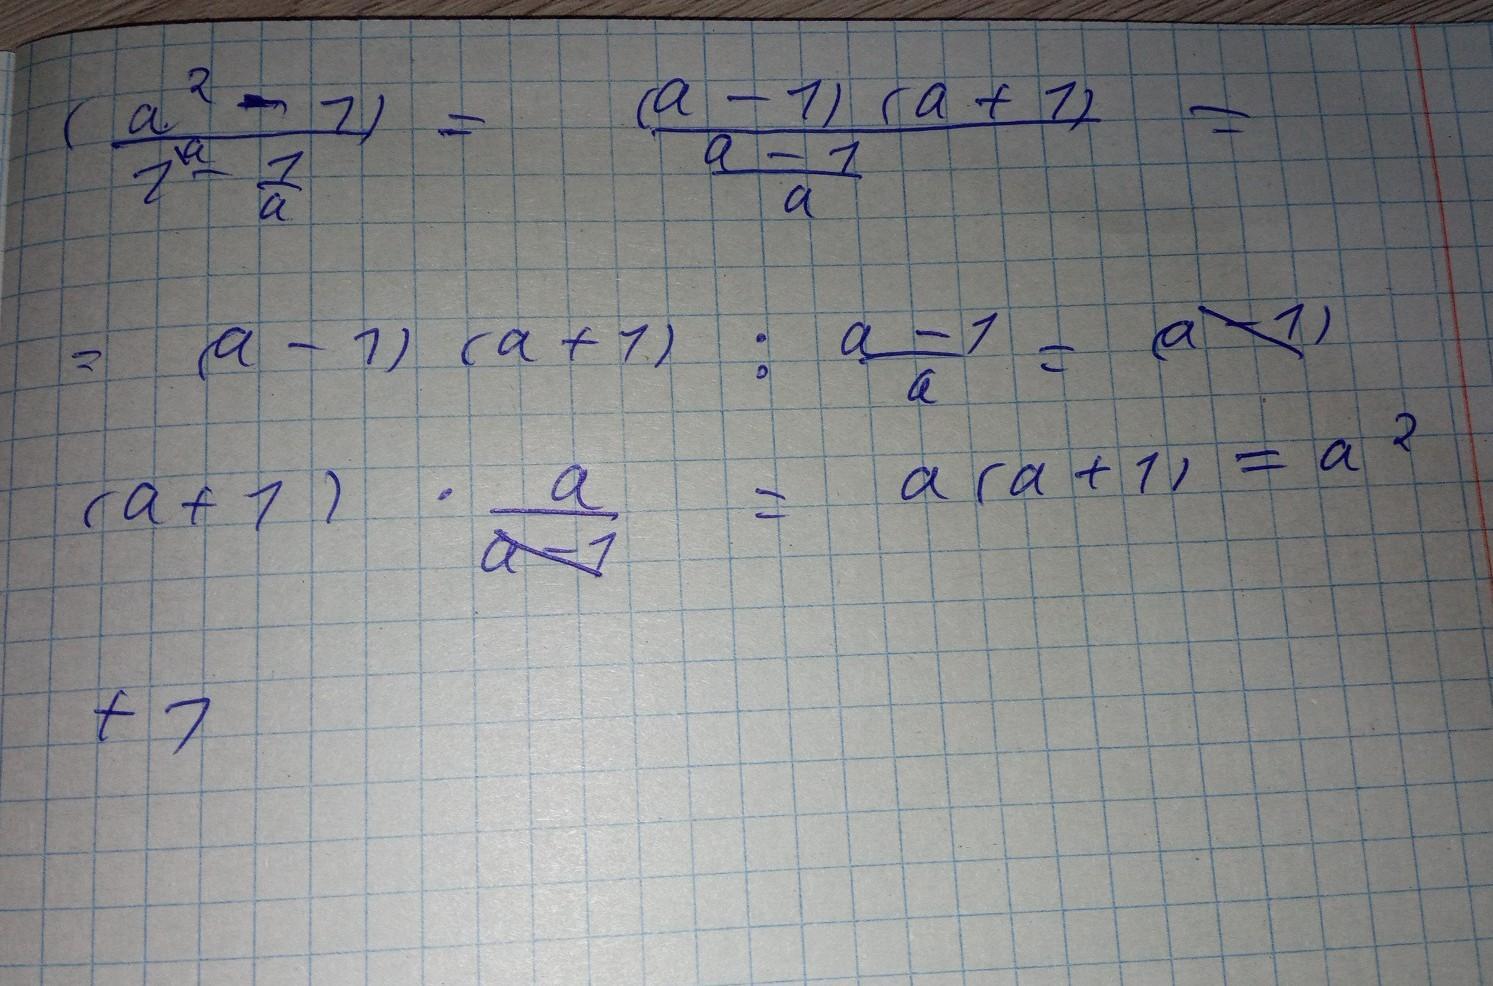 (a² - 1) / (1ᵃ - 1/a) = (a - 1) (a + 1) / ((a - 1)/a) =
= (a - 1) (a + 1) : (a - 1)/a = (a - 1)
(a + 1) · a/(a - 1) = a (a + 1) = a²
+ 1